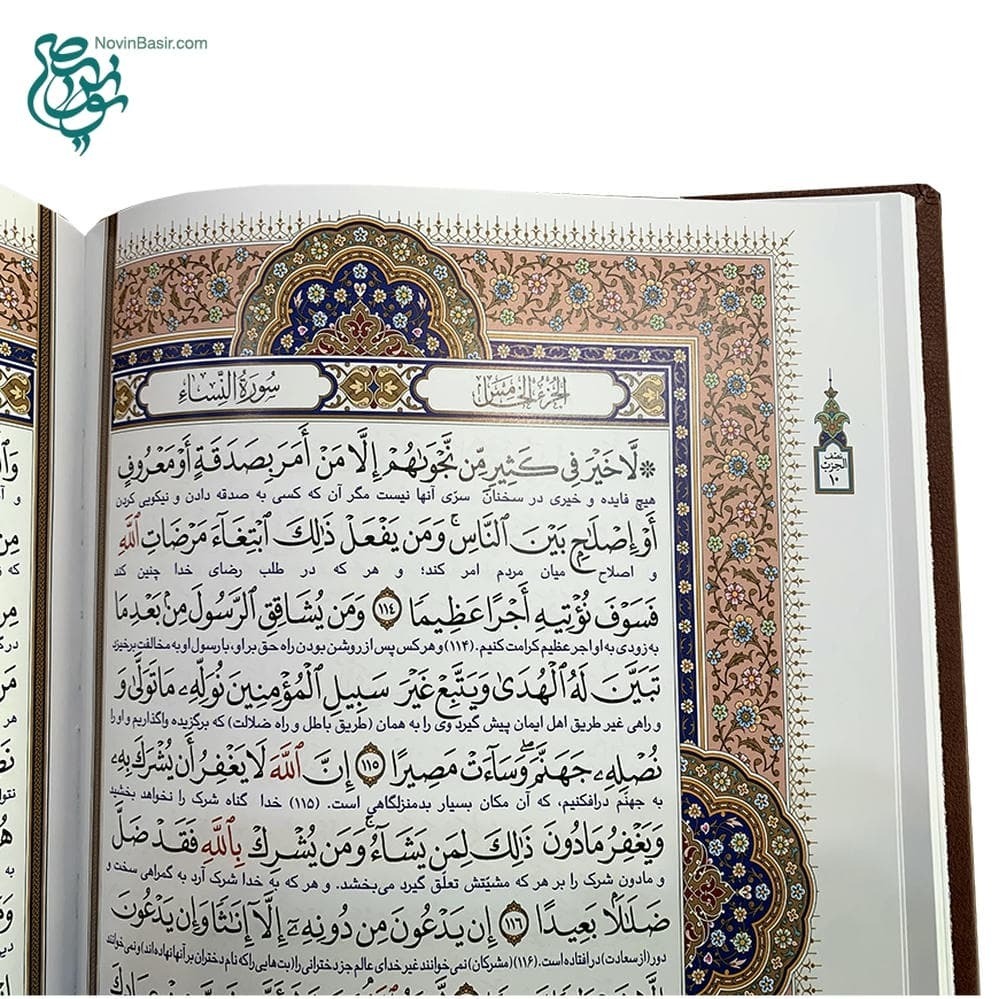 NovinBasir.com
سُورَةُ النِّسَاءِ
الجُزءُ الخَامِسُ
نصف
الحزب
١٠
* لَّا خَيْرَ فِي كَثِيرٍ مِّن نَّجْوَىٰهُمْ إِلَّا مَنْ أَمَرَ بِصَدَقَةٍ أَوْ مَعْرُوفٍ
هیچ فایده و خیری در سخنان سرّی آنها نیست مگر آن که کسی به صدقه دادن و نیکویی کردن
أَوْ إِصْلَٰحٍ بَيْنَ ٱلنَّاسِ ۚ وَمَن يَفْعَلْ ذَٰلِكَ ٱبْتِغَآءَ مَرْضَاتِ ٱللَّهِ
و اصلاح میان مردم امر کند؛ و هر که در طلب رضای خدا چنین کند
فَسَوْفَ نُؤْتِيهِ أَجْرًا عَظِيمًا ١١٤ وَمَن يُشَاقِقِ ٱلرَّسُولَ مِنۢ بَعْدِ مَا
به زودی به او اجر عظیم کرامت کنیم. (۱۱۴) و هر کس پس از روشن بودن راه حق بر او، با رسول او به مخالفت برخیزد
تَبَيَّنَ لَهُ ٱلْهُدَىٰ وَيَتَّبِعْ غَيْرَ سَبِيلِ ٱلْمُؤْمِنِينَ نُوَلِّهِۦ مَا تَوَلَّىٰ وَ
و راهی غیر طریق اهل ایمان پیش گیرد وی را به همان (طریق باطل و راه ضلالت) که برگزیده واگذاریم و او را
نُصْلِهِۦ جَهَنَّمَ ۖ وَسَآءَتْ مَصِيرًا ١١٥ إِنَّ ٱللَّهَ لَا يَغْفِرُ أَن يُشْرَكَ بِهِۦ
به جهنّم درافکنیم، که آن مکان بسیار بدمنزلگاهی است. (۱۱۵) خدا گناه شرک را نخواهد بخشید
وَيَغْفِرُ مَا دُونَ ذَٰلِكَ لِمَن يَشَآءُ ۚ وَمَن يُشْرِكْ بِٱللَّهِ فَقَدْ ضَلَّ
و مادون شرک را بر هر که مشیّتش تعلق گیرد می‌بخشد. و هر که به خدا شرک آرد به گمراهی سخت و
ضَلَٰلًۢا بَعِيدًا ١١٦ إِن يَدْعُونَ مِن دُونِهِۦٓ إِلَّآ إِنَٰثًا وَإِن يَدْعُونَ
دور (از سعادت) در افتاده است. (۱۱۶) (مشرکان) نمی‌خوانند غیر خدای عالم جز دخترانی را (بت‌هایی را که نام دختران بر آنها نهاده‌اند) و نمی‌خوانند